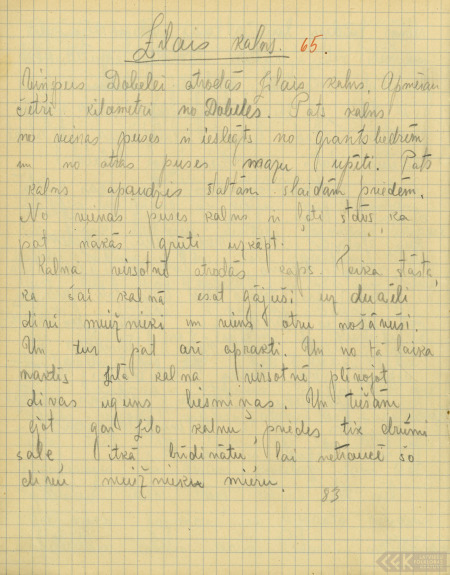 Zilais kalns. 65.
Viņpus Dobelei atrodās Zilais kalns. Apmēram
četri kilometri no Dobeles. Pats kalns
no vienas puses ir ieslēgts no grants bedrēm
un no otras puses mazu upīti. Pats
kalns apaudzis staltām slaidām priedēm.
No vienas puses kalns ir ļoti stāvs, ka
pat nākās grūti uzkāpt.
Kalna virsotnē atrodās kaps. Teika stāsta,
ka šai kalnā esot gājuši uz duaēli
divi muižnieki un viens otru nošāvuši.
Un tur pat arī aprakti. Un no tā laika
naktīs Zilā kalna virsotnē plīvojot
divas uguns liesmiņas. Un tiešām
ejot gar Zilo kalnu, priedes tik drūmi
šalc, itkā brīdinātu, lai netraucē šo
divu muižnieku mieru.
83